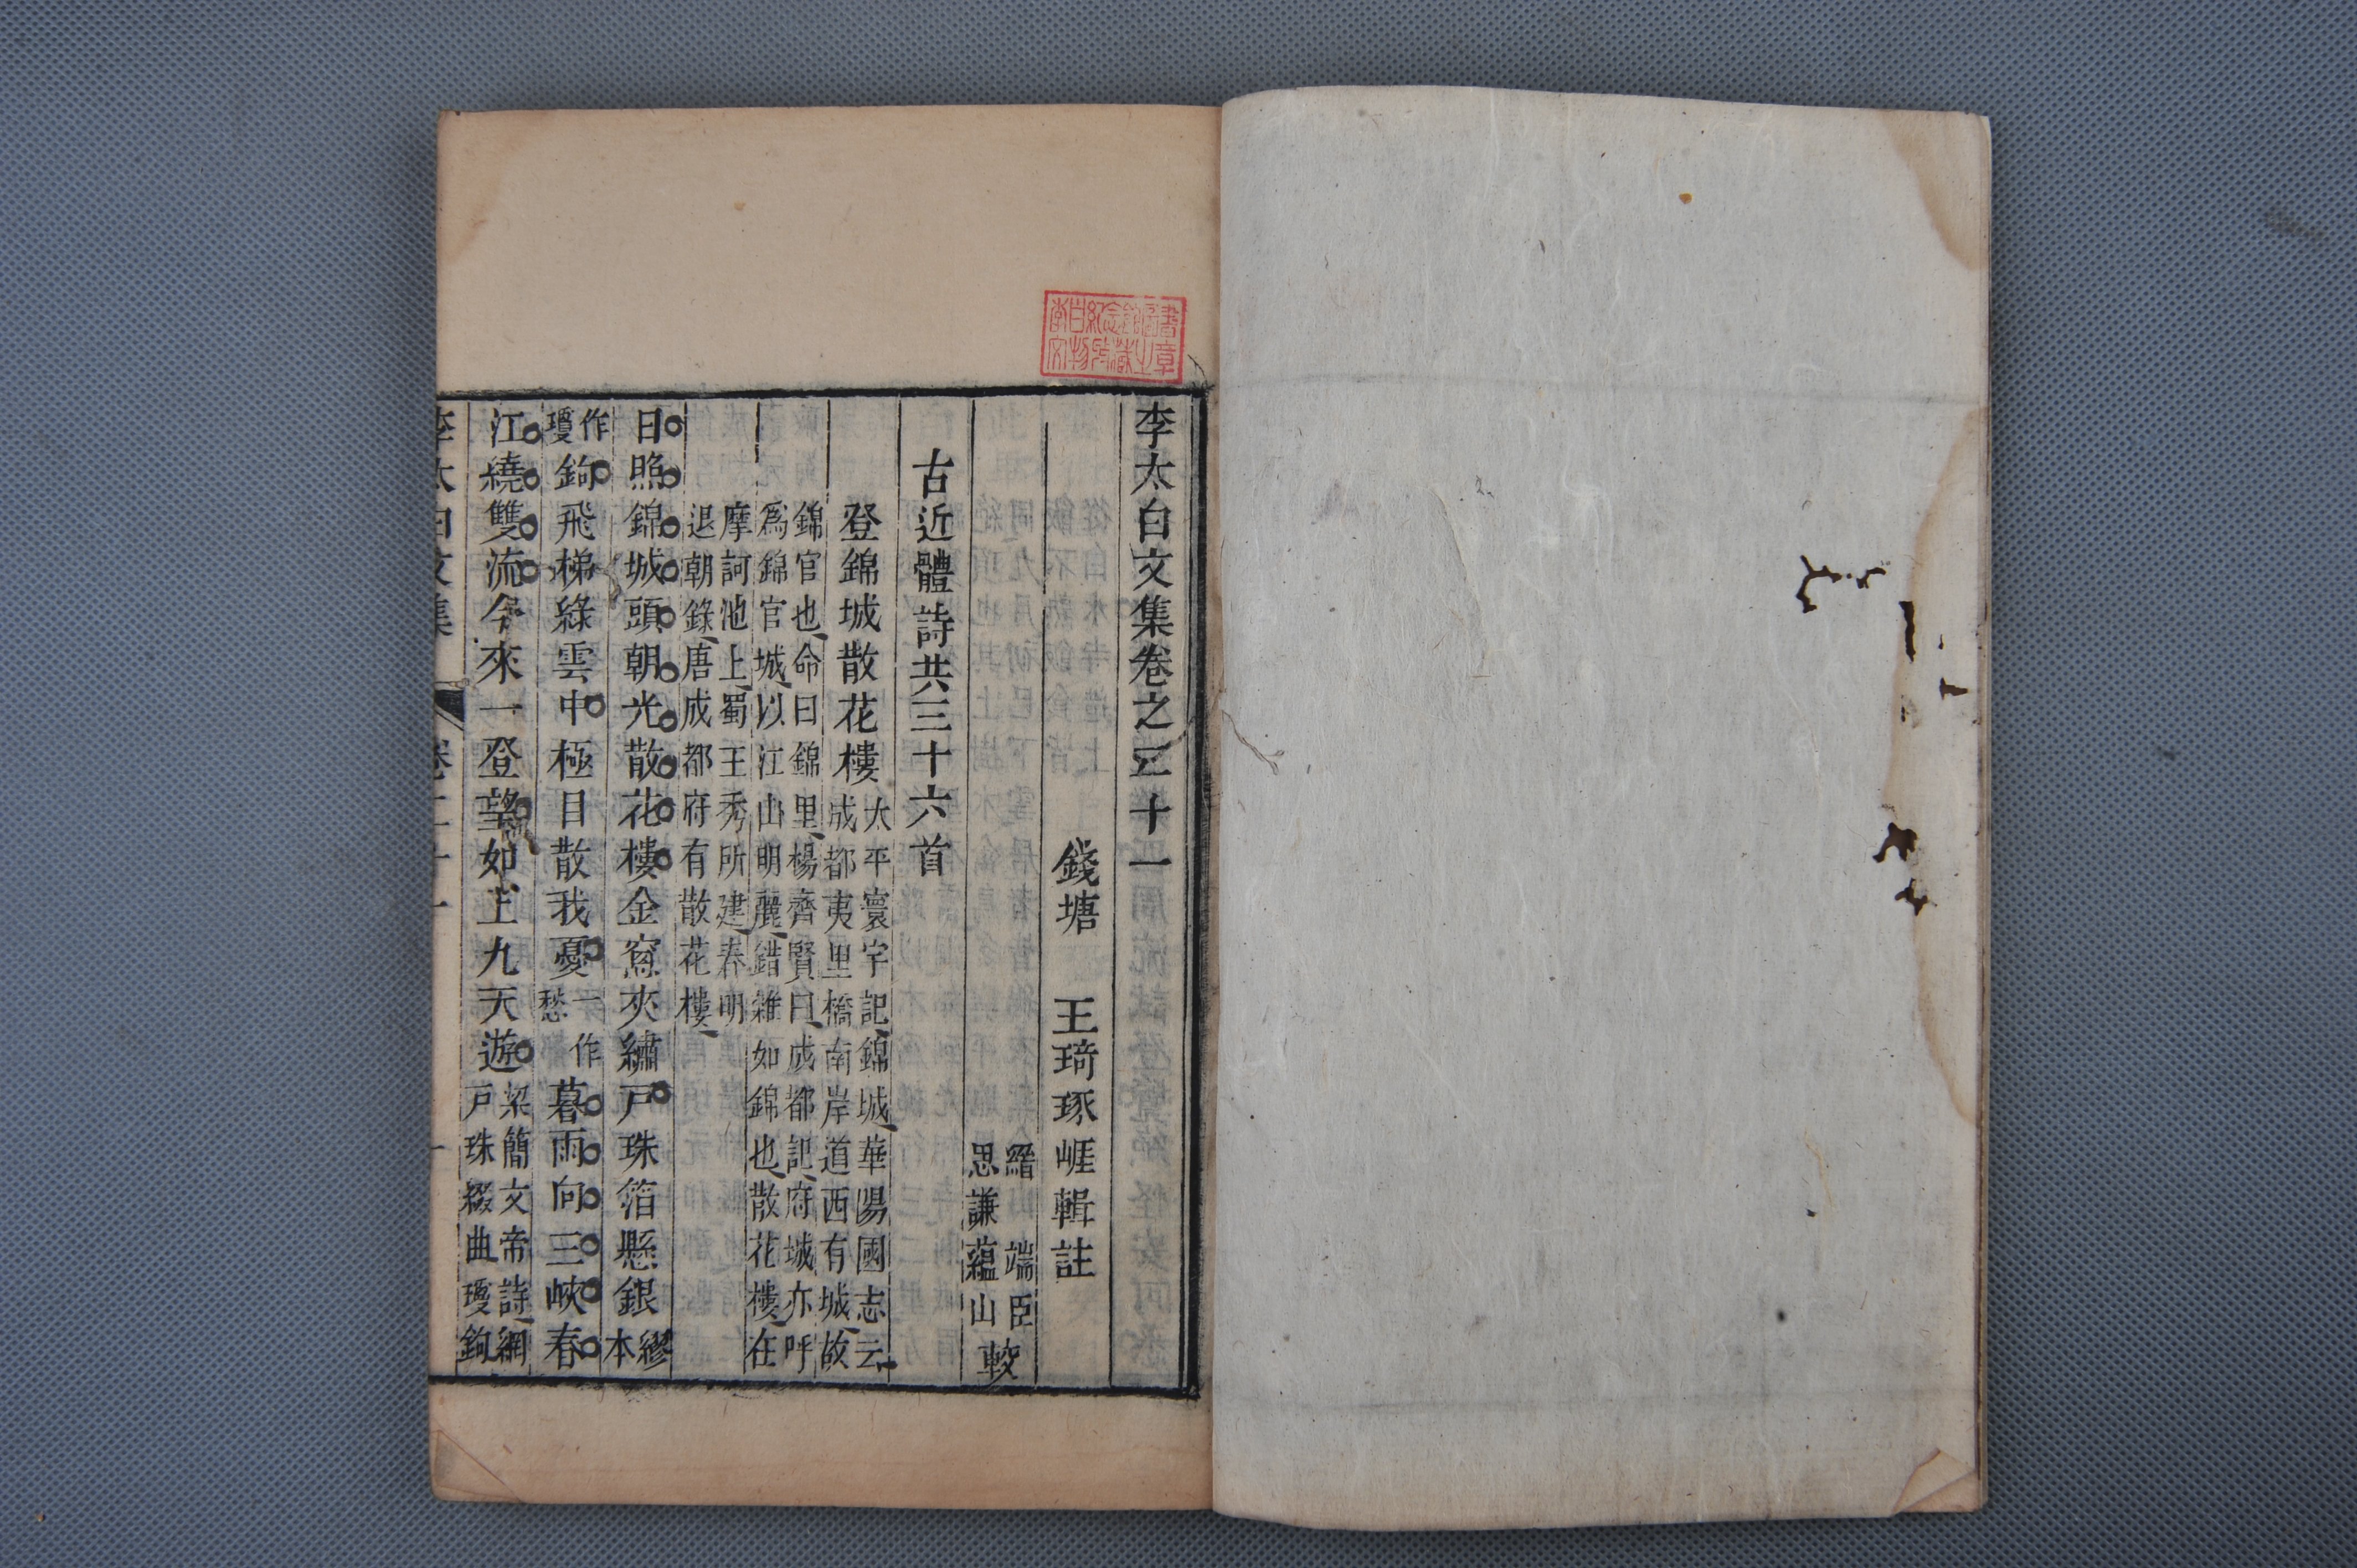 李白紀念館圖書
文物藏之章
李太白文集卷之二十一
錢塘　王琦琢崕輯註
縉　端臣
思謙蘊山
較
古近體詩共三十六首
登錦城散花樓
太平寰宇記、錦城、華陽國志云、
成都夷里橋南岸道西有城、故
錦官也、命曰錦里、楊齊賢曰、成都記、府城亦呼
爲錦官城、以江山明麗、錯雜如錦也、散花樓、在
摩訶池上、蜀王秀所建、春明
退朝錄、唐成都府有散花樓、
日照錦城頭朝光散花樓金窻夾繡戶珠箔懸銀繆本
作瓊鉤飛梯綠雲中極目散我憂一作愁暮雨向三峽春
江繞雙流今來一登望如上九天遊
梁簡文帝詩、網
戶珠綴曲瓊鉤
李太白文集　卷二十一　一